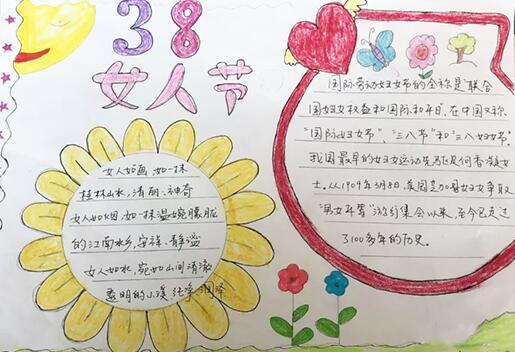 38
女人节
女人如画,如一抹
桂林山水,清丽、神奇
女人如烟,如一抹温婉朦胧
的江南水乡,安祥、静谧
女人如水,宛如山间清澈
透明的小溪 纯净 润泽
国际劳动妇女节的全称是"联合
国妇女权益和国际和平日,在中国又称
"国际妇女节","三八节"和"三八妇女节".
我国最早的妇女运动先驱是何香凝女
士,从1909年3月8日,美国芝加哥妇女争取
"男女平等"游行集会以来,至今已走过
了100多年的历史。